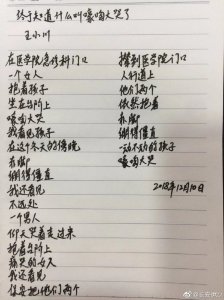 终于知道什么叫嚎啕大哭了
王小川
在医学院急诊科门口
一个女人
抱着孩子
坐在台阶上
嚎啕大哭
我看见孩子
在这个冬天的傍晚
赤脚
绷得僵直
我还看见
不远处
一个男人
仰天哭着走过来
抱着台阶上
痛哭的女人
我还看见
保安把他们两个
撵到医学院门口
人行道上
他们两个
依然抱着
赤脚
绷得僵直
一动不动的孩子
嚎啕大哭
2018年12月10日